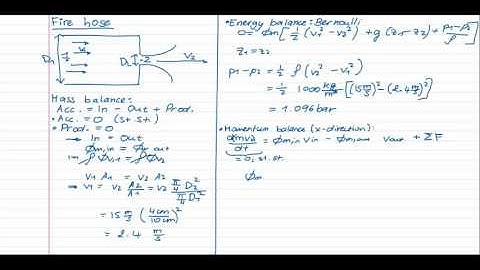 Fire hose
D₁ 1 v₁ D₂ 2 v₂
Mass balance:
Acc. = In - Out + Prod.
• Acc. = 0 (st. st.)
• Prod. = 0
→ In = Out
ϕm,in = ϕm,out
ρϕv,1 = ρϕv,2
v₁ A₁ = v₂ A₂
→ v₁ = v₂ A₂/A₁ = v₂ (π/4 D₂²)/(π/4 D₁²)
= 15 m/s (4cm/10cm)²
= 2.4 m/s
• Energy balance: Bernoulli
0 = ϕm [½ (v₁² - v₂²) + g (z₁ - z₂) + (p₁-p₂)/ρ]
z₁ = z₂
p₁-p₂ = ½ ρ (v₂² - v₁²)
= ½ 1000 kg/m³ [(15 m/s)² - (2.4 m/s)²]
= 1.096 bar
• Momentum balance (x-direction):
dmvx/dt = ϕm,in vin - ϕm,out vout + ΣF
= 0, st. st.
ϕm